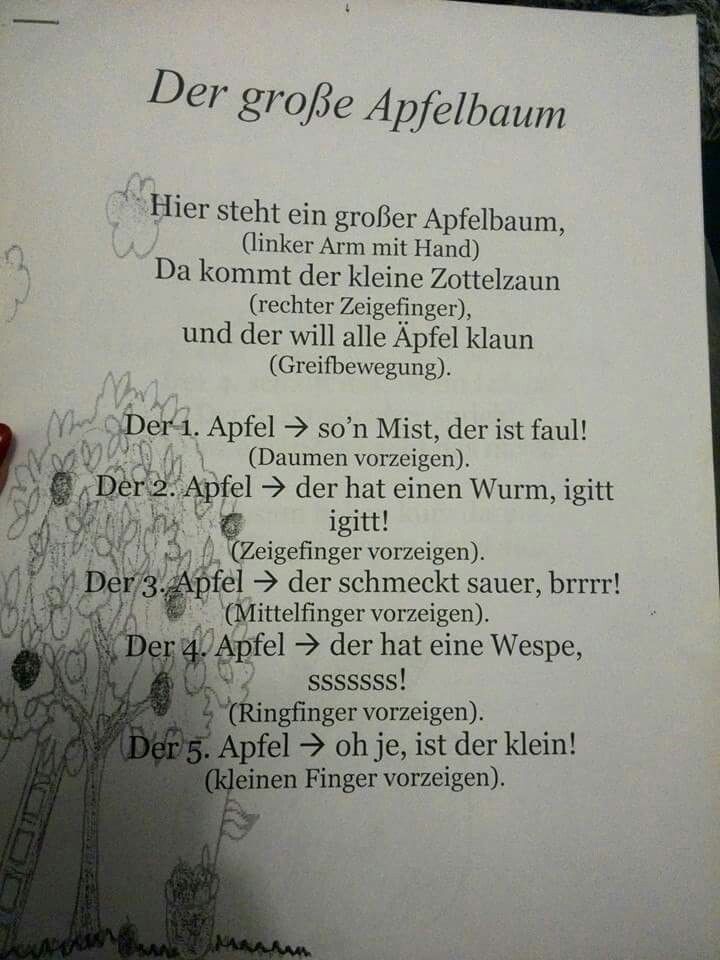 Der große Apfelbaum
Hier steht ein großer Apfelbaum,
(linker Arm mit Hand)
Da kommt der kleine Zottelzaun
(rechter Zeigefinger),
und der will alle Äpfel klaun
(Greifbewegung).
Der 1. Apfel → so’n Mist, der ist faul!
(Daumen vorzeigen).
Der 2. Apfel → der hat einen Wurm, igitt
igitt!
(Zeigefinger vorzeigen).
Der 3. Apfel → der schmeckt sauer, brrrr!
(Mittelfinger vorzeigen).
Der 4. Apfel → der hat eine Wespe,
sssssss!
(Ringfinger vorzeigen).
Der 5. Apfel → oh je, ist der klein!
(kleinen Finger vorzeigen).